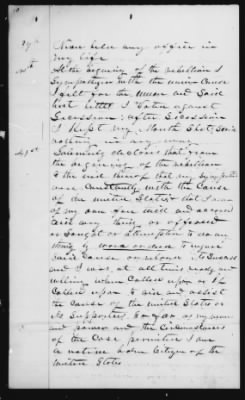 29th Never held any office in
my life
At the beginning of the rebellion I
sympathized with the union cause
I felt for the union and said
but little I voted against
Secession; after Secession
I Kept my Mouth Shut, said
nothing in any way
I solemnly declare that from
the beginning of the rebellion
to the end thereof that my sympathies
were constantly with the cause
of the United States that I never
of my own free will and accord
did any thing or offered
or sought or attempted to do any
thing by word or deed to injure
said cause or retard its success
and I was at all times ready and
willing when called upon or if
called upon to aid and assist
the cause of the United States or
its supporters so far as my means
and power and the circumstances
of the case permitted I am
a native born citizen of the
United States